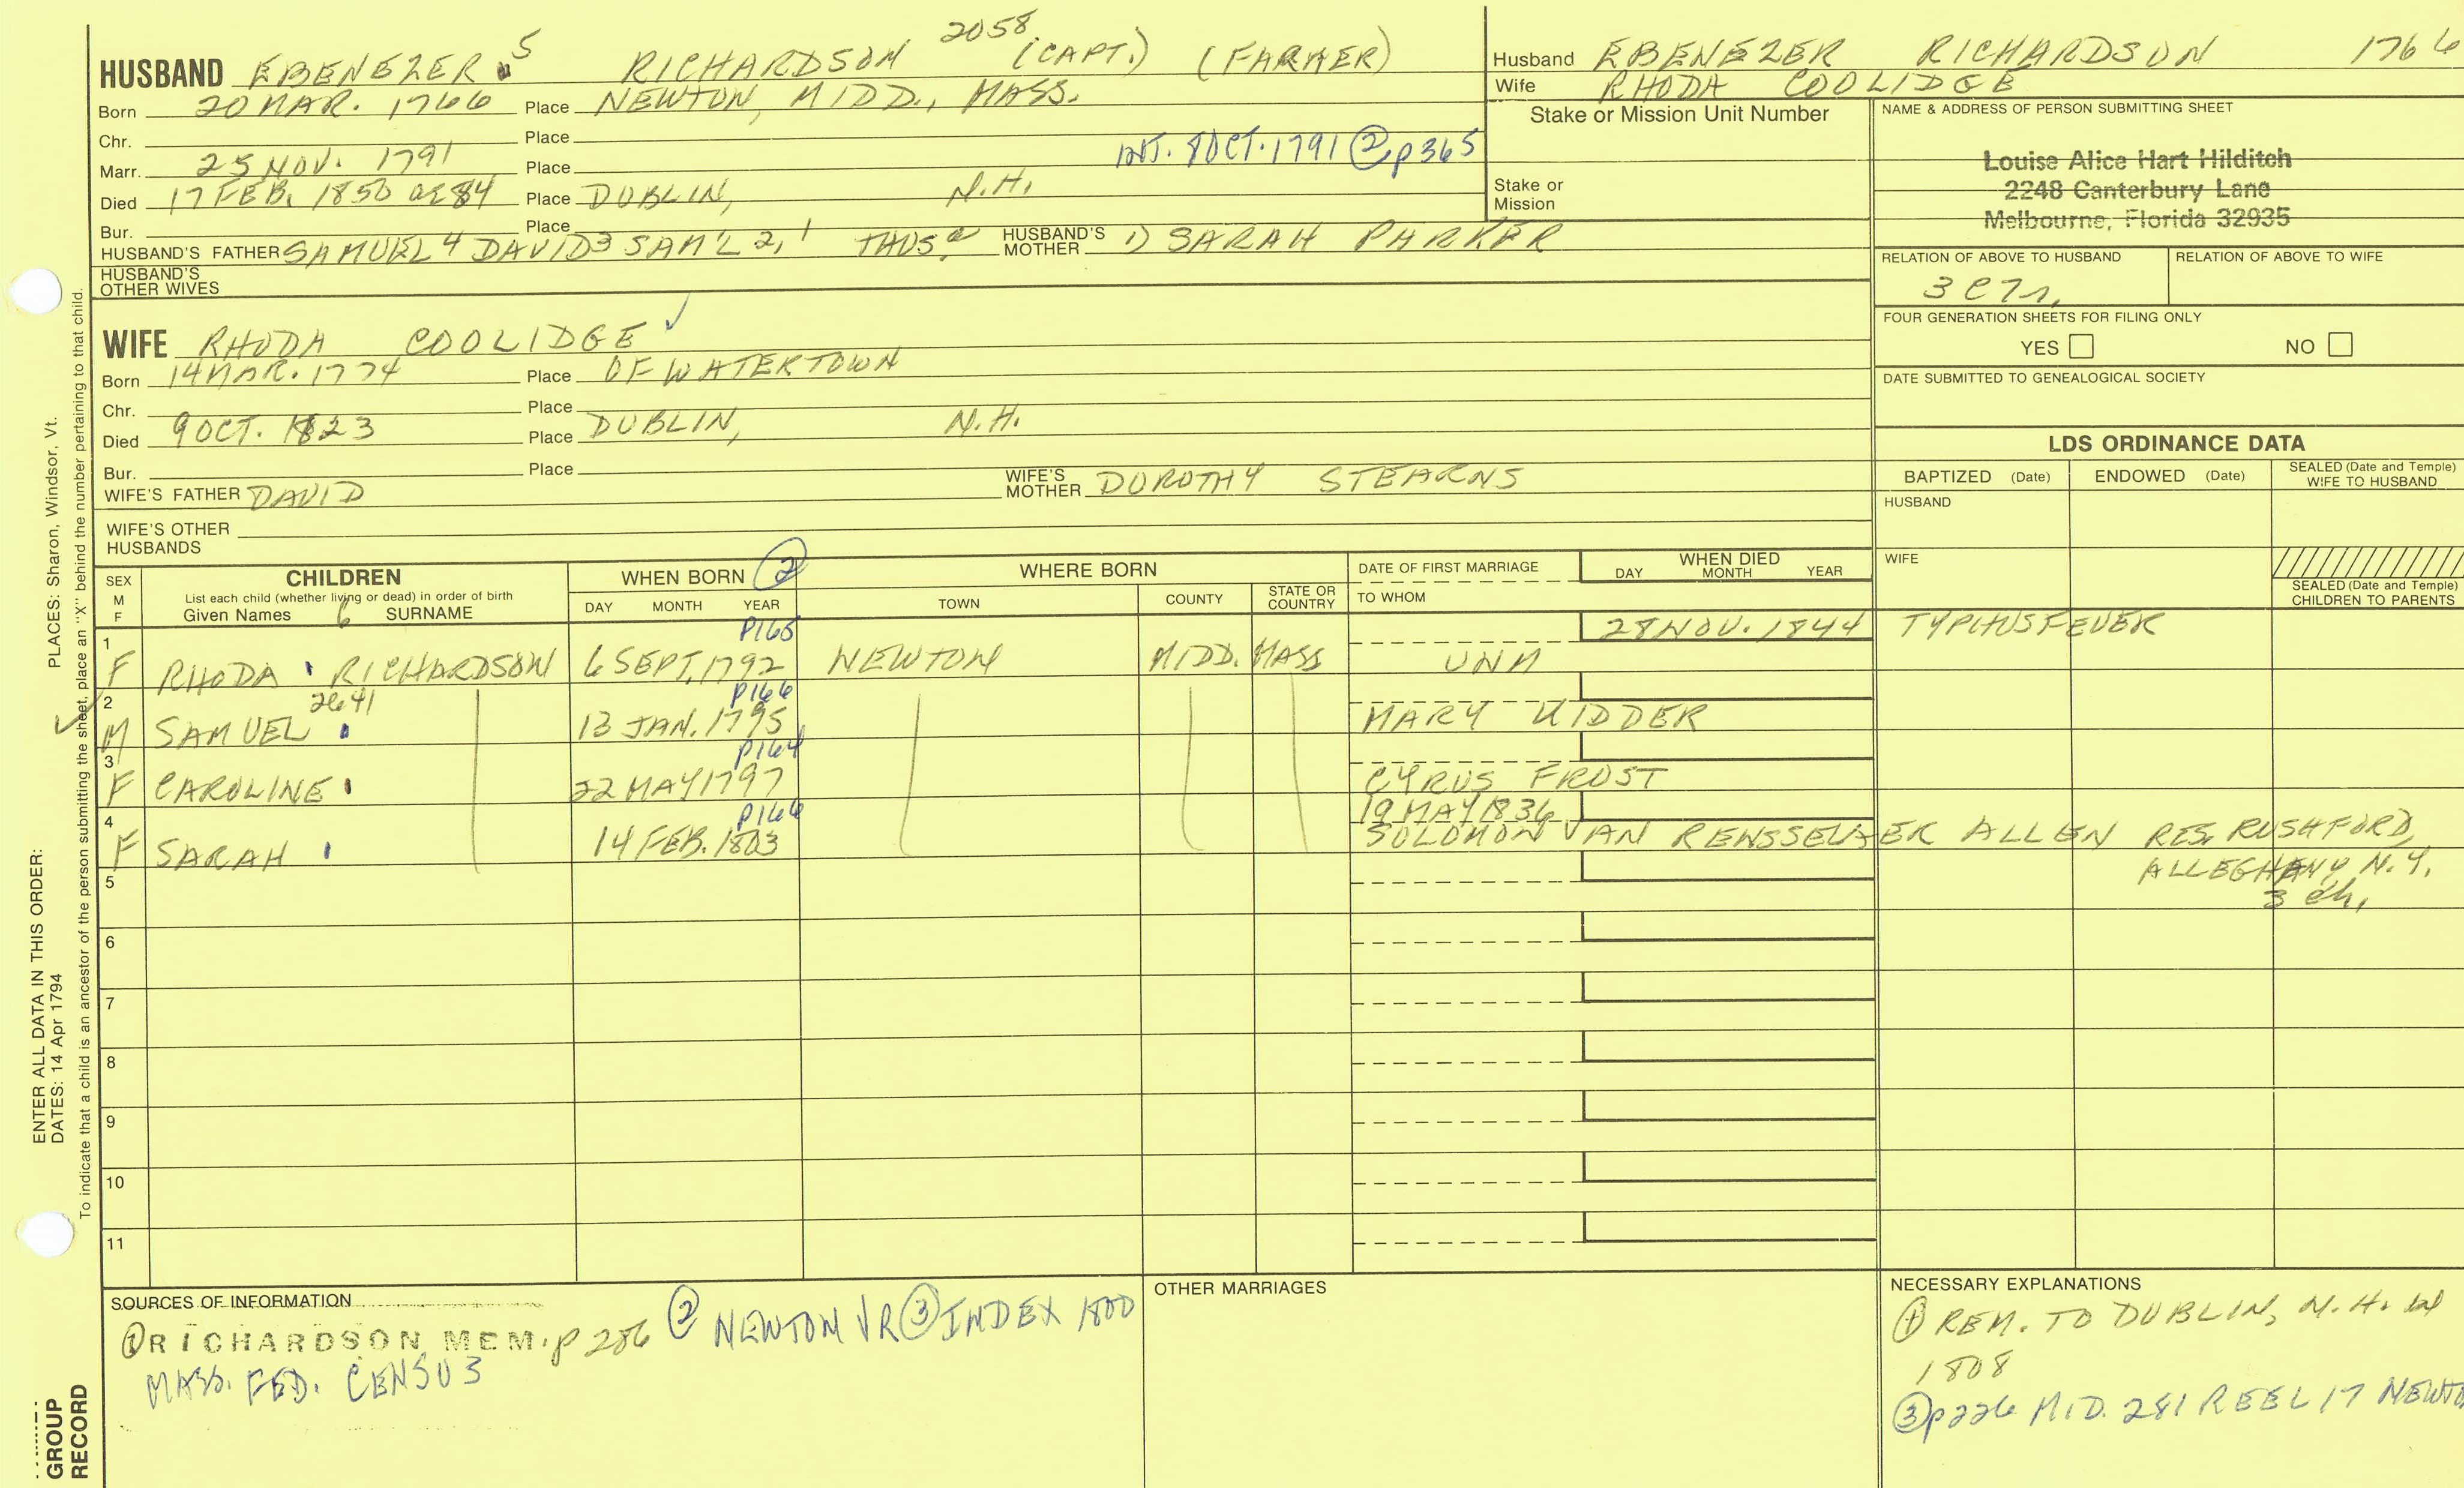 HUSBAND EBENEZER 5 RICHARDSON 2058 (CAPT.) (FARMER)
Born 20 MAR. 1766 Place NEWTON, MIDD., MASS.
Chr. Place
INT. 8 OCT. 1791 ② p 365
Marr. 25 NOV. 1791 Place
Died 17 FEB. 1850 ae 84 Place DUBLIN, N.H.
Bur. Place
HUSBAND'S FATHER SAMUEL 4 DAVID 3 SAM'L 2, 1 THOS. HUSBAND'S MOTHER 1) SARAH PARKER
HUSBAND'S OTHER WIVES
WIFE RHODA COOLIDGE ✓
Born 14 MAR. 1774 Place OF WATERTOWN
Chr. Place
Died 9 OCT. 1823 Place DUBLIN, N.H.
Bur. Place
WIFE'S FATHER DAVID WIFE'S MOTHER DOROTHY STEARNS
WIFE'S OTHER HUSBANDS
Husband EBENEZER RICHARDSON 1766
Wife RHODA COOLIDGE
Stake or Mission Unit Number
Stake or
Mission
NAME & ADDRESS OF PERSON SUBMITTING SHEET
Louise Alice Hart Hilditch
2248 Canterbury Lane
Melbourne, Florida 32935
RELATION OF ABOVE TO HUSBAND RELATION OF ABOVE TO WIFE
3 C 7 r.
FOUR GENERATION SHEETS FOR FILING ONLY
YES NO
DATE SUBMITTED TO GENEALOGICAL SOCIETY
LDS ORDINANCE DATA
BAPTIZED (Date) ENDOWED (Date) SEALED (Date and Temple) WIFE TO HUSBAND
HUSBAND
WIFE
SEALED (Date and Temple) CHILDREN TO PARENTS
SEX M F CHILDREN WHEN BORN ② WHERE BORN DATE OF FIRST MARRIAGE WHEN DIED
List each child (whether living or dead) in order of birth
Given Names 6 SURNAME DAY MONTH YEAR TOWN COUNTY STATE OR COUNTRY TO WHOM DAY MONTH YEAR
P165 28 NOV. 1844 TYPHUS FEVER
1 F RHODA RICHARDSON 6 SEPT. 1792 NEWTON MIDD. MASS UNM
2641 P166
2 M SAMUEL 13 JAN. 1795 MARY KIDDER
P164
3 F CAROLINE 22 MAY 1797 CYRUS FROST
P166 19 MAY 1836
4 F SARAH 14 FEB. 1803 SOLOMON VAN RENSSELAER ALLEN RES. RUSHFORD,
ALLEGHANY, N.Y.
3 ch.
5
6
7
8
9
10
11
SOURCES OF INFORMATION
① RICHARDSON MEM. p 286 ② NEWTON VR ③ INDEX 1800
MASS. FED. CENSUS
OTHER MARRIAGES
NECESSARY EXPLANATIONS
① REM. TO DUBLIN, N.H. in
1808
③ p 226 MID. 281 REEL 17 NEWTO
ENTER ALL DATA IN THIS ORDER:
DATES: 14 Apr 1794 PLACES: Sharon, Windsor, Vt.
To indicate that a child is an ancestor of the person submitting the sheet, place an "X" behind the number pertaining to that child.
GROUP
RECORD